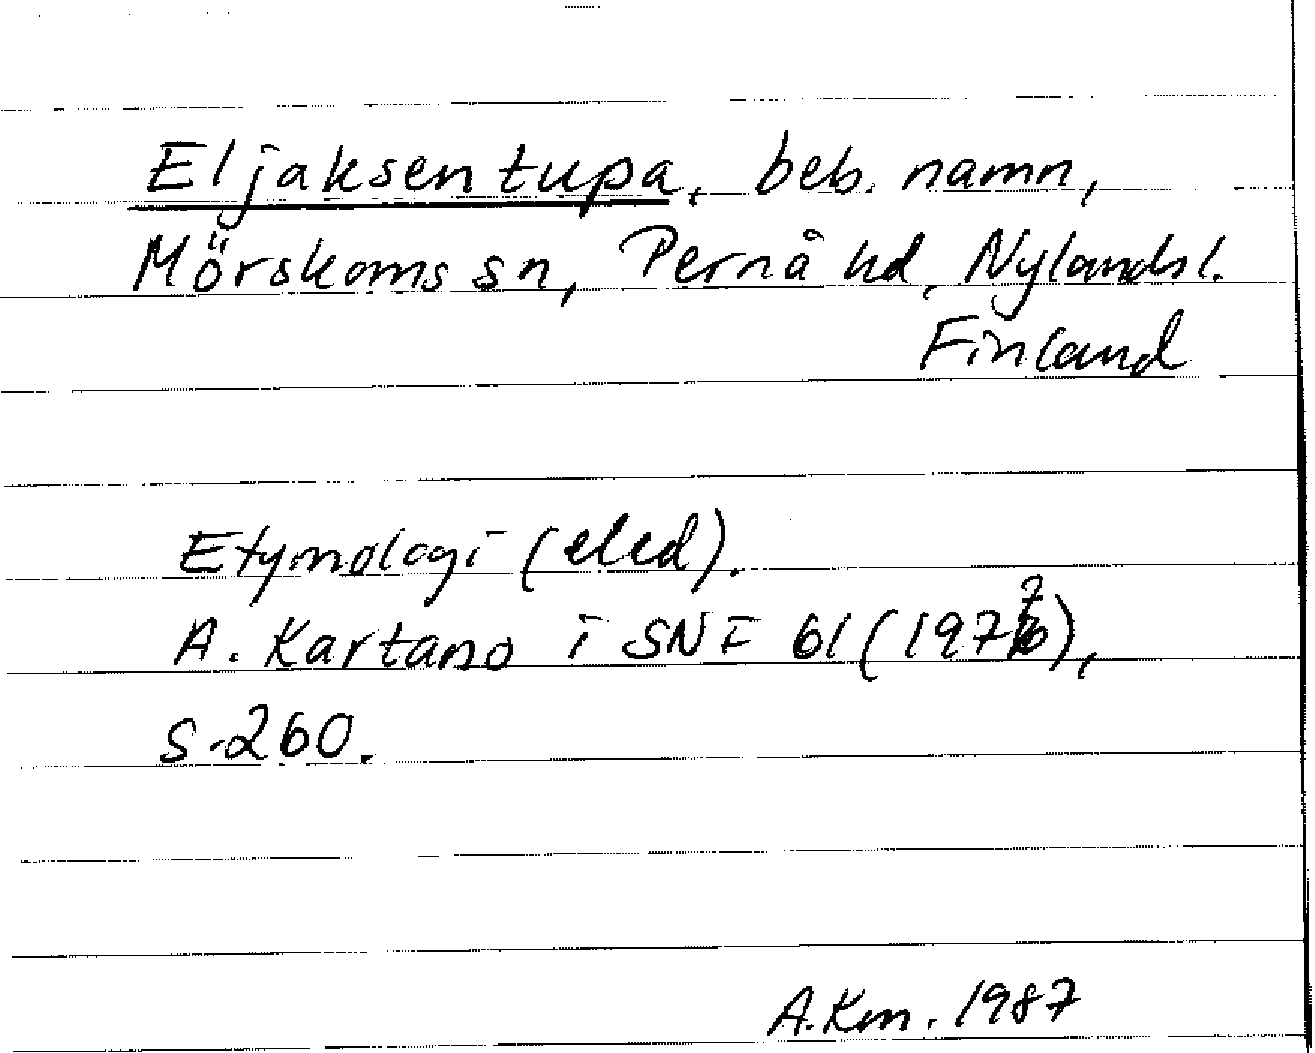 Eljaksen tupa, beb. namn,
Mörskoms sn, Pernå hd, Nylands l.
Finland
Etymologi (eled).
A. Kartano i SNF 61 (1977),
s. 260.
A.Km. 1987